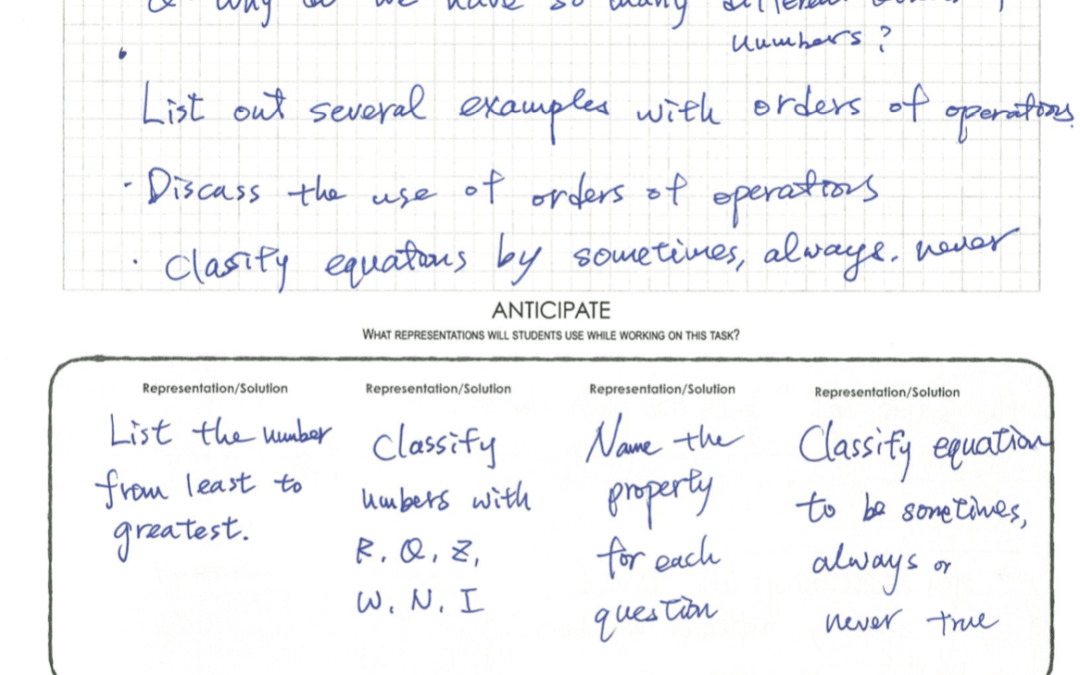 & why do we have so many different
numbers?
List out several examples with orders of operations.
- Discass the use of orders of operations
· Clasify equations by sometimes, always, never
ANTICIPATE
WHAT REPRESENTATIONS WILL STUDENTS USE WHILE WORKING ON THIS TASK?
Representation/Solution Representation/Solution Representation/Solution Representation/Solution
List the number
from least to
greatest.
Classify
numbers with
R, Q, Z,
W, N, I
Name the
property
for each
question
Classify equation
to be sometimes,
always or
never true